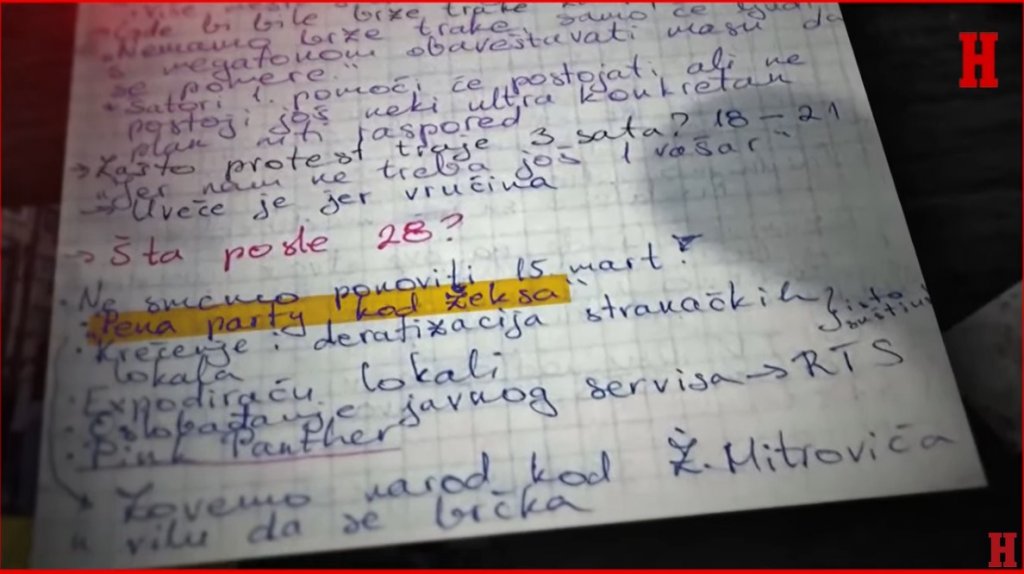 gde bi bile brze trake
Nemamo brze trake, samo će ljudi
s megafonom obaveštavati masu da
se pomere."
• Šatori 1. pomoći će postojati, ali ne
postoji još neki ultra konkretan
plan niti raspored
→ Zašto protest traje 3 sata? 18 – 21
"jer nam ne treba još 1 vašar"
→ Uveče je jer vrućina
→ Šta posle 28?
• Ne smemo ponoviti 15 mart!
• Pena party kod Žeksa"
• Krečenje i deratizacija stranačkih } isto
lokala suštini
• Expodiraču lokali
• Oslobađanje javnog servisa → RTS
• Pink Panther
Zovemo narod kod Ž. Mitrovića
u vilu da se brčka
H
H